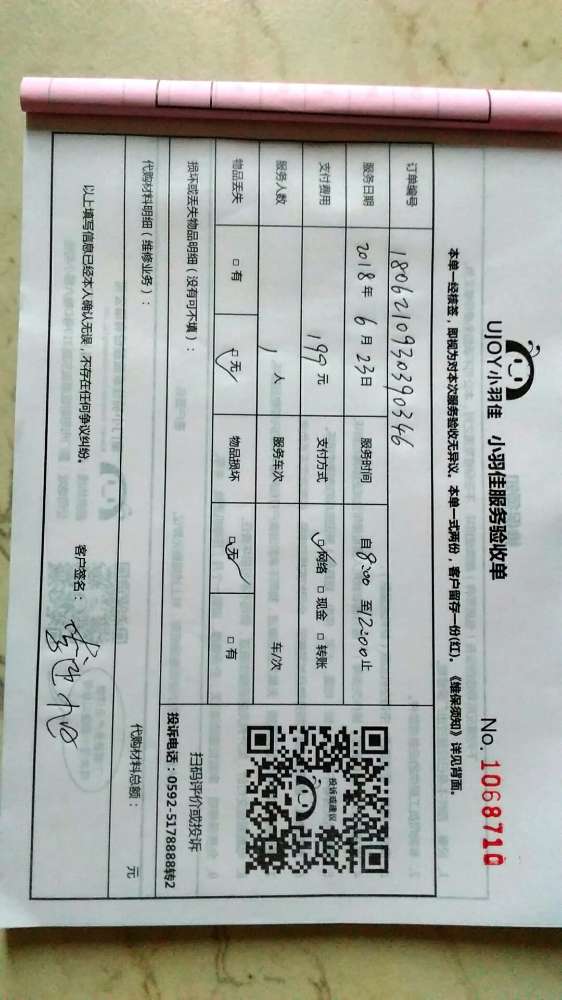 UJOY小羽佳 小羽佳服务验收单
No. 1068710
本单一经核签，即视为对本次服务验收无异议。本单一式两份，客户留存一份(红)。《维保须知》详见背面。
订单编号 1806210930390346
服务日期 2018年 6月 23日 服务时间 自8:00 至12:00止
支付费用 199元 支付方式 ☑网络 □现金 □转账
服务人数 1人 服务车次 车/次
物品丢失 □有 ☑无 物品损坏 ☑无 □有
损坏或丢失物品明细（没有可不填）：
投诉或建议
扫码评价或投诉
投诉电话：0592-5178888转2
代购材料明细（维修业务）：
代购材料总额： 元
以上填写信息已经本人确认无误，不存在任何争议纠纷。 客户签名：